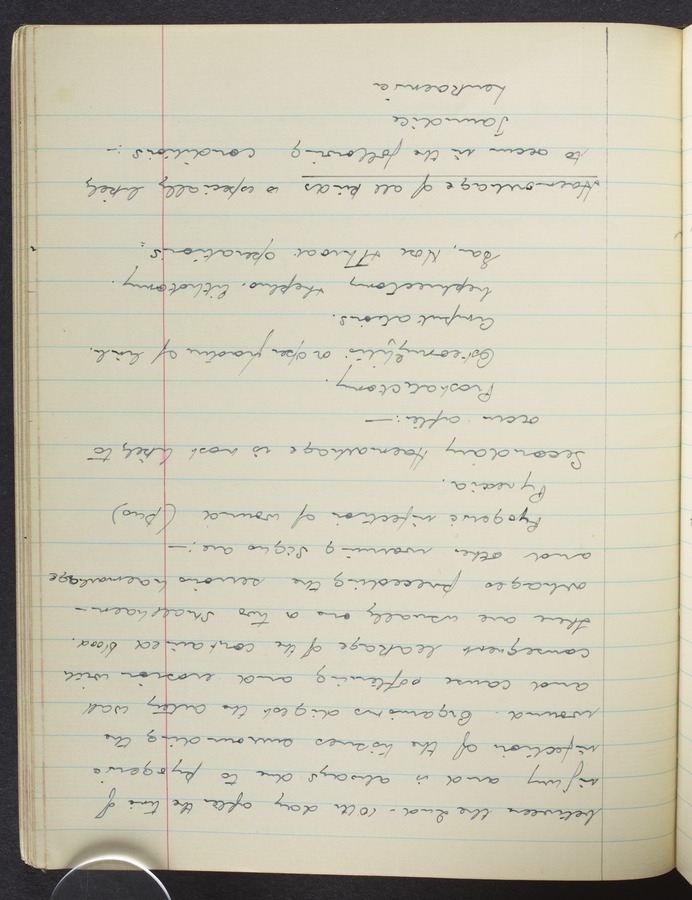 between the 2nd - 10th day after the time of
injury and is always due to pyogenic
infection of the tissues surrounding the
wound. Organisms digest the artery wall
and cause softening and erosion with
consequent leakage of the contained blood.
there are usually one or two small haem-
orrhages preceeding the serious haemorrhage
and other warning signs are :-
Pyogenic infection of wound (pus)
Pyrexia.
Secondary Haemorrhage is most likely to
occur after :-
Prostatectomy.
Osteomylitis or open fracture of limb.
Amputations.
Nephrectomy Nephro. lithotomy.
Ear, Nose & Throat operations.
Haemorrhage of all kinds is specially likely
to occur in the following conditions :-
Jaundice
Leukaemia